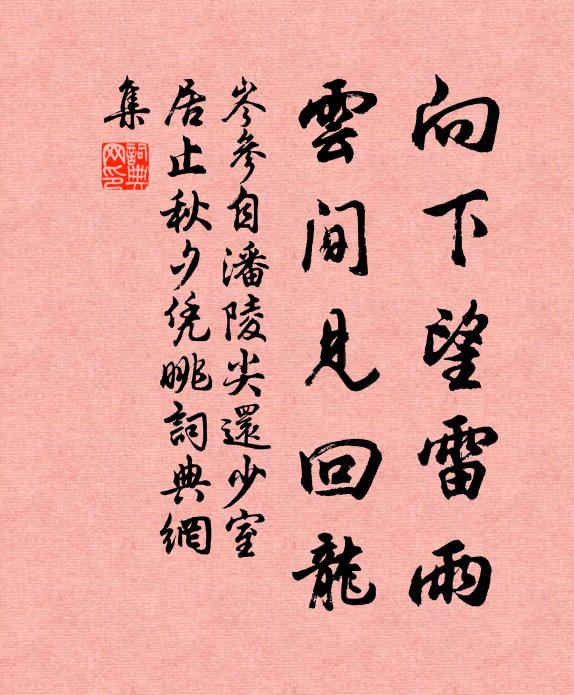 向下望雷雨
雲間見回龍
岑參自潘陵尖還少室
居止秋夕凭眺詞典網
集
詞典
网印